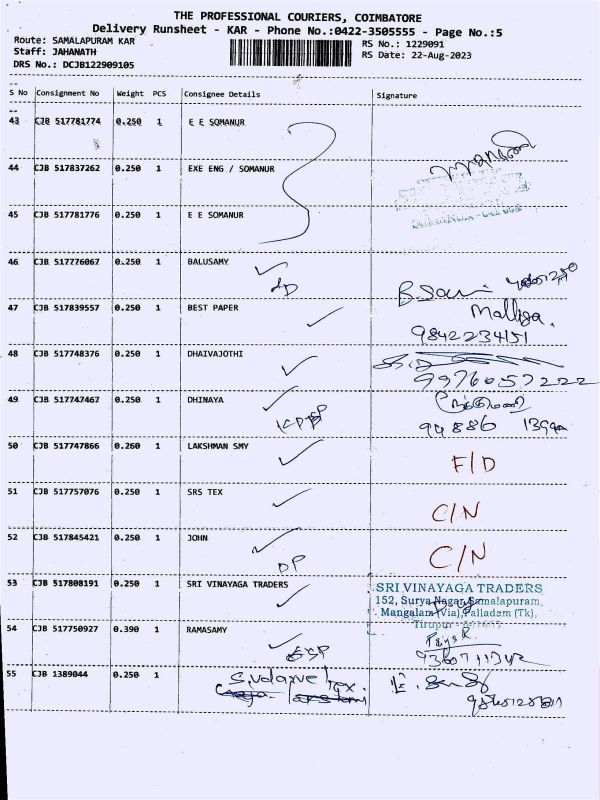 THE PROFESSIONAL COURIERS, COIMBATORE
Delivery Runsheet - KAR - Phone No.:0422-3505555 - Page No.:5
Route: SAMALAPURAM KAR
RS No.: 1229091
Staff: JAHANATH
RS Date: 22-Aug-2023
DRS No.: DCJB122909105
S No Consignment No Weight PCS Consignee Details Signature
43 CJB 517781774 0.250 1 E E SOMANUR
44 CJB 517837262 0.250 1 EXE ENG / SOMANUR
45 CJB 517781776 0.250 1 E E SOMANUR
46 CJB 517776067 0.250 1 BALUSAMY
47 CJB 517839557 0.250 1 BEST PAPER Malliga.
9842234151
48 CJB 517748376 0.250 1 DHAIVAJOTHI
9976057222
49 CJB 517747467 0.250 1 DHINAYA
94886
50 CJB 517747866 0.260 1 LAKSHMAN SMY F/D
51 CJB 517757076 0.250 1 SRS TEX C/N
52 CJB 517845421 0.250 1 JOHN C/N
DP
53 CJB 517808191 0.250 1 SRI VINAYAGA TRADERS SRI VINAYAGA TRADERS
152, Surya Nagar, Samalapuram,
Mangalam (Via), Palladam (Tk),
Tirupur
54 CJB 517750927 0.390 1 RAMASAMY
55 CJB 1389044 0.250 1 Tex.